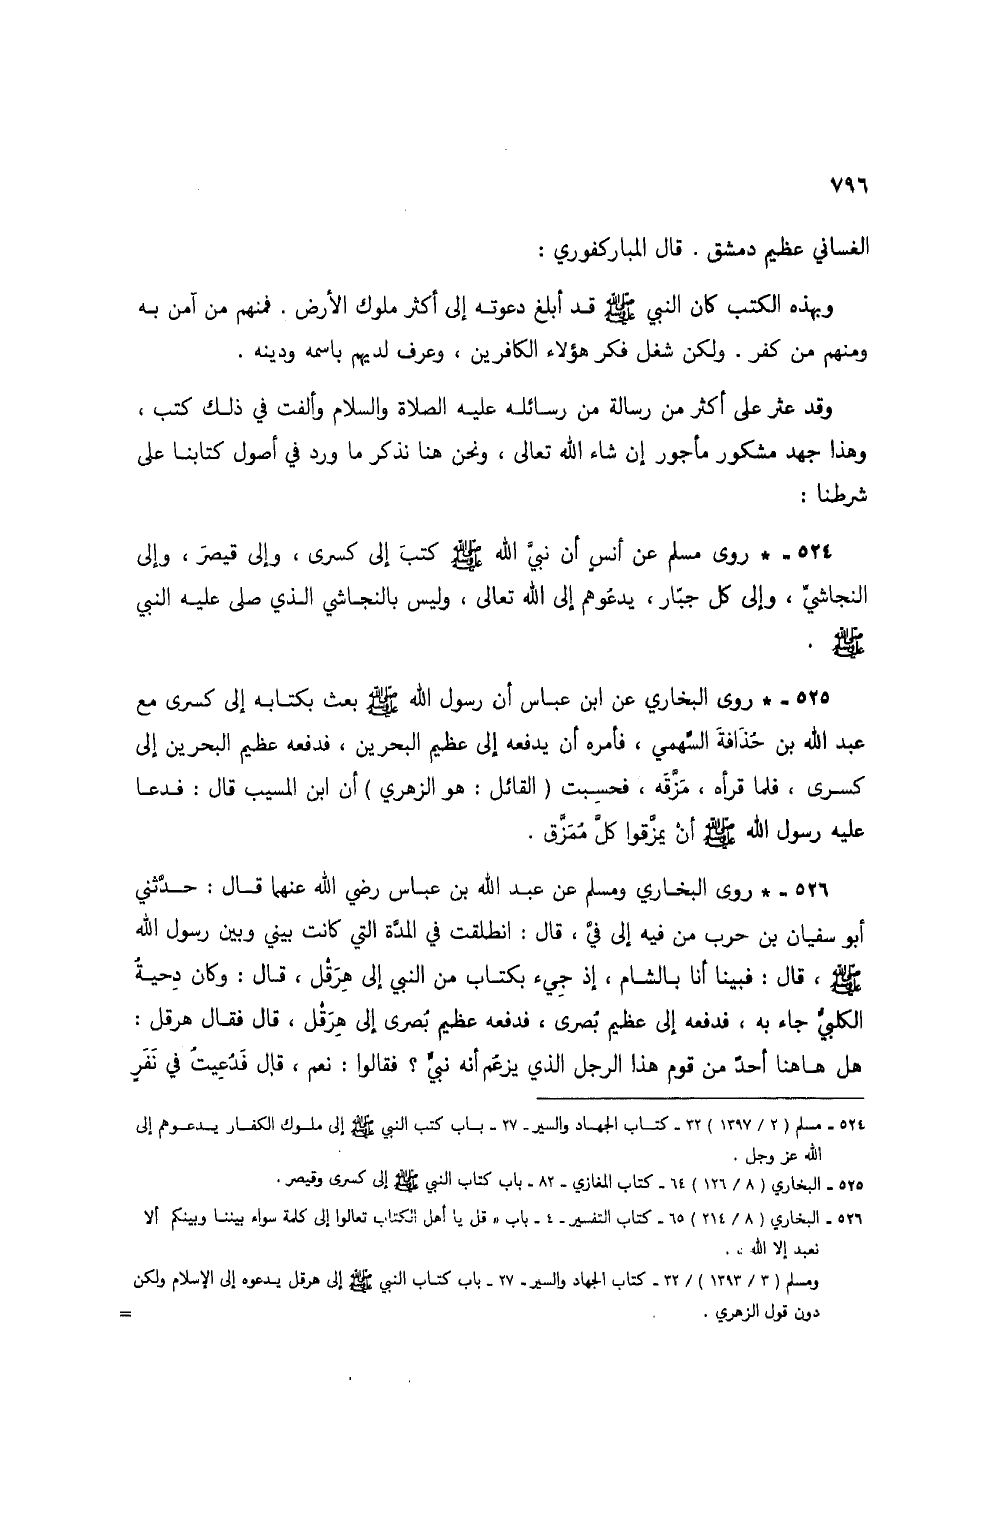 ٧٩٦
الغساني عظيم دمشق . قال المباركفوري :
وبهذه الكتب كان النبي ﷺ قد أبلغ دعوته إلى أكثر ملوك الأرض . فمنهم من آمن به
ومنهم من كفر . ولكن شغل فكر هؤلاء الكافرين ، وعرف لديهم باسمه ودينه .
وقد عثر على أكثر من رسالة من رسائله عليه الصلاة والسلام وألفت في ذلك كتب ،
وهذا جهد مشكور مأجور إن شاء الله تعالى ، ونحن هنا نذكر ما ورد في أصول كتابنا على
شرطنا :
٥٢٤ - * روى مسلم عن أنسٍ أن نبيَّ الله ﷺ كتبَ إلى كسرى ، وإلى قيصرَ ، وإلى
النجاشيِّ ، وإلى كل جبّار ، يدعُوهم إلى الله تعالى ، وليس بالنجاشي الذي صلى عليه النبي
ﷺ .
٥٢٥ - * روى البخاري عن ابن عباس أن رسول الله ﷺ بعث بكتابه إلى كسرى مع
عبد الله بن حُذَافةَ السَّهمي ، فأمره أن يدفعه إلى عظيم البحرين ، فدفعه عظيم البحرين إلى
كسرى ، فلما قرأه ، مَزَّقَه ، فحسِبت ( القائل : هو الزهري ) أن ابن المسيب قال : فدعا
عليه رسول الله ﷺ أنْ يمزَّقوا كلَّ مُمَزَّق .
٥٢٦ - * روى البخاري ومسلم عن عبد الله بن عباس رضي الله عنهما قال : حدَّثني
أبو سفيان بن حرب من فيه إلى فيَّ ، قال : انطلقت في المدَّة التي كانت بيني وبين رسول الله
ﷺ ، قال : فبينا أنا بالشام ، إذ جِيء بكتاب من النبي إلى هِرَقْل ، قال : وكان دِحيةُ
الكلبيُّ جاء به ، فدفعه إلى عظيم بُصرى ، فدفعه عظيم بُصرى إلى هِرَقْل ، قال فقال هرقل :
هل هاهنا أحدٌ من قوم هذا الرجل الذي يزعُم أنه نبيٌّ ؟ فقالوا : نعم ، قال فَدُعِيتُ في نَفَرٍ
٥٢٤ - مسلم ( ٢ / ١٣٩٧ ) ٣٢ - كتاب الجهاد والسير - ٢٧ - باب كتب النبي ﷺ إلى ملوك الكفار يدعوهم إلى
الله عز وجل .
٥٢٥ - البخاري ( ٨ / ١٢٦ ) ٦٤ - كتاب المغازي - ٨٢ - باب كتاب النبي ﷺ إلى كسرى وقيصر .
٥٢٦ - البخاري ( ٨ / ٢١٤ ) ٦٥ - كتاب التفسير - ٤ - باب « قل يا أهل الكتاب تعالوا إلى كلمة سواء بيننا وبينكم ألا
نعبد إلا الله » .
ومسلم ( ٣ / ١٣٩٣ ) / ٣٢ - كتاب الجهاد والسير - ٢٧ - باب كتاب النبي ﷺ إلى هرقل يدعوه إلى الإسلام ولكن
دون قول الزهري .
=